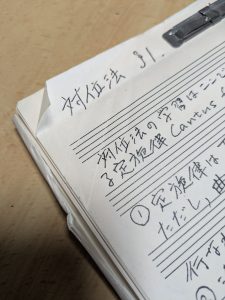 対位法 §1.
対位法の学習は
る定旋律 Cantus f
① 定旋律は
ただし、曲
行な
②